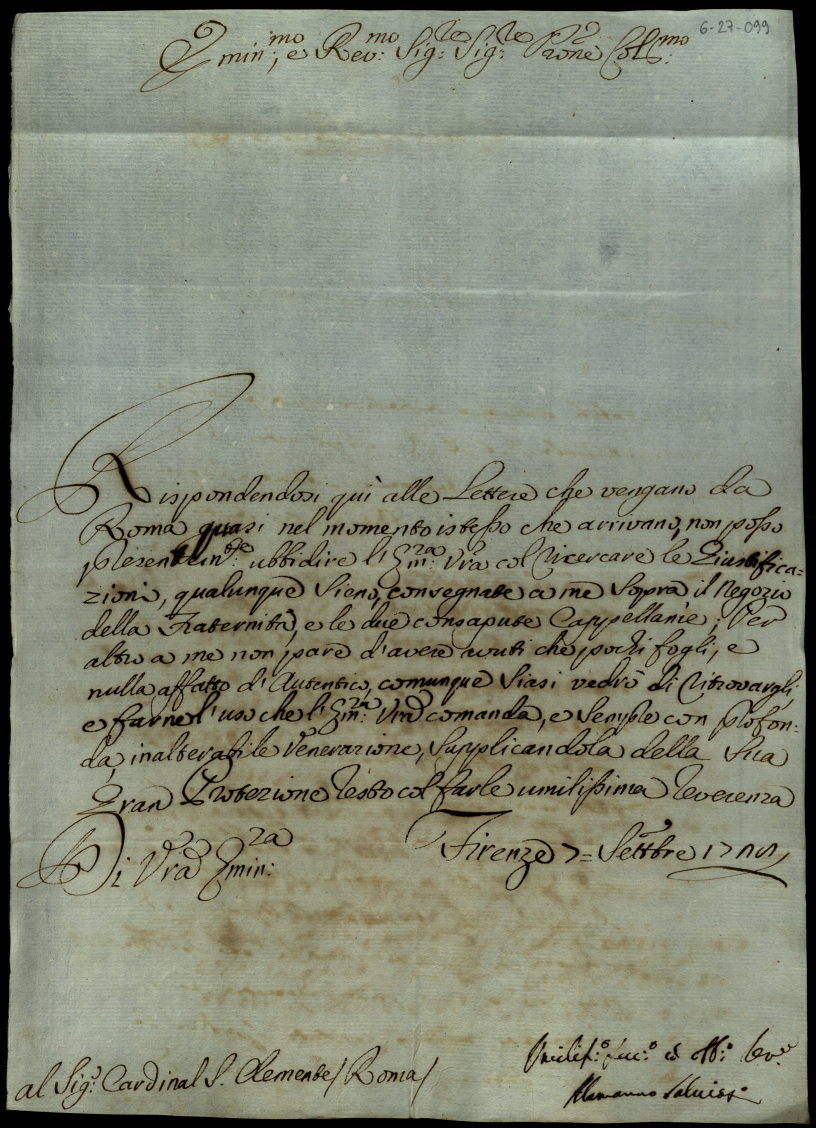 6-27-099
Emin:mo, e Rev:mo Sig:re Sig:re Prone Col:mo
Rispondendosi quì alle Lettere che vengano da
Roma quasi nel momento istesso che arrivano, non posso
presentem:te ubbidire l'Em:za Vra col ricercare le Giustifica=
zioni, qualunque sieno, consegnate a me sopra il Negozio
della Fraternità, e le due consapute Cappellanie; Per
altro a me non pare d'avere avuti che pochi fogli, e
nulla affatto d'Autentico, comunque siasi vedrò di ritrovargli,
e farne l'uso che l'Em:za Vra comanda, e sempre con profon=
da, inalterabile Venerazione, supplicandola della sua
Gran Protezione resto col farle umilissima reverenza
Di Vra Emin:za
Firenze 7= Settbre
al Sig:r Cardinal S. Clemente / Roma /
Umiliss:o e Obb:o Ser:e
Alamanno Salviati